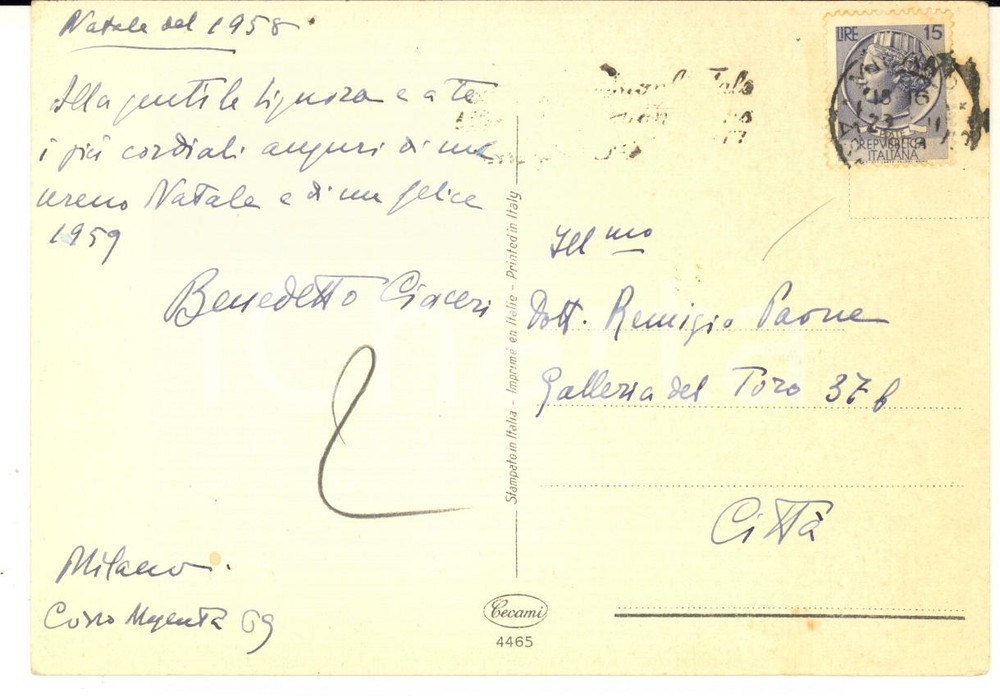 Natale del 1958.
Alla gentile Signora e a te
i più cordiali auguri di un
sereno Natale e di un felice
1959
Benedetto Ciaceri
Milano.
Corso Magenta 69
Stampato in Italia - Imprimé en Italie - Printed in Italy
Cecami
4465
LIRE 15
POSTE
REPVBBLICA
ITALIANA
18 16
23
Ill mo
Dott. Remigio Paone
Galleria del Toro 37 b
Città